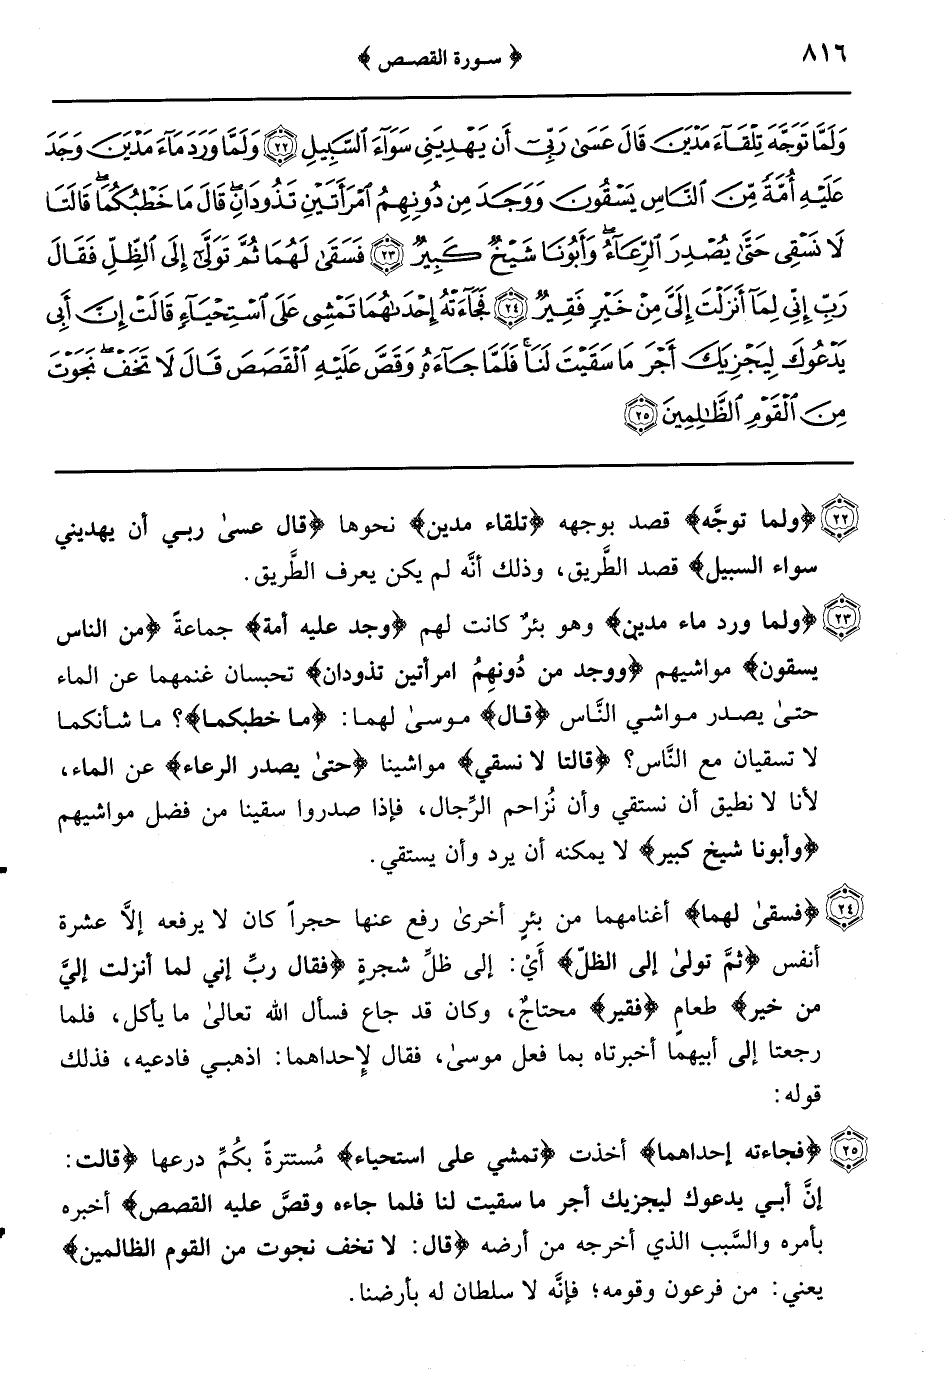 ﴿ سورة القصص ﴾ ٨١٦
وَلَمَّا تَوَجَّهَ تِلْقَآءَ مَدْيَنَ قَالَ عَسَىٰ رَبِّىٓ أَن يَهْدِيَنِى سَوَآءَ ٱلسَّبِيلِ ٢٢ وَلَمَّا وَرَدَ مَآءَ مَدْيَنَ وَجَدَ
عَلَيْهِ أُمَّةً مِّنَ ٱلنَّاسِ يَسْقُونَ وَوَجَدَ مِن دُونِهِمُ ٱمْرَأَتَيْنِ تَذُودَانِۖ قَالَ مَا خَطْبُكُمَاۖ قَالَتَا
لَا نَسْقِى حَتَّىٰ يُصْدِرَ ٱلرِّعَآءُۖ وَأَبُونَا شَيْخٌ كَبِيرٌ ٢٣ فَسَقَىٰ لَهُمَا ثُمَّ تَوَلَّىٰٓ إِلَى ٱلظِّلِّ فَقَالَ
رَبِّ إِنِّى لِمَآ أَنزَلْتَ إِلَىَّ مِنْ خَيْرٍ فَقِيرٌ ٢٤ فَجَآءَتْهُ إِحْدَىٰهُمَا تَمْشِى عَلَى ٱسْتِحْيَآءٍ قَالَتْ إِنَّ أَبِى
يَدْعُوكَ لِيَجْزِيَكَ أَجْرَ مَا سَقَيْتَ لَنَاۚ فَلَمَّا جَآءَهُۥ وَقَصَّ عَلَيْهِ ٱلْقَصَصَ قَالَ لَا تَخَفْۖ نَجَوْتَ
مِنَ ٱلْقَوْمِ ٱلظَّٰلِمِينَ ٢٥
٢٢ ﴿ولما توجَّه﴾ قصد بوجهه ﴿تلقاء مدين﴾ نحوها ﴿قال عسىٰ ربي أن يهديني
سواء السبيل﴾ قصد الطَّريق، وذلك أنَّه لم يكن يعرف الطَّريق.
٢٣ ﴿ولما ورد ماء مدين﴾ وهو بئرٌ كانت لهم ﴿وجد عليه أمة﴾ جماعةً ﴿من الناس
يسقون﴾ مواشيهم ﴿ووجد من دُونهِمُ امرأتين تذودان﴾ تحبسان غنمهما عن الماء
حتىٰ يصدر مواشي النَّاس ﴿قال﴾ موسىٰ لهما: ﴿ما خطبكما﴾؟ ما شأنكما
لا تسقيان مع النَّاس؟ ﴿قالتا لا نسقي﴾ مواشينا ﴿حتىٰ يصدر الرعاء﴾ عن الماء،
لأنا لا نطيق أن نستقي وأن نُزاحم الرِّجال، فإذا صدروا سقينا من فضل مواشيهم
﴿وأبونا شيخ كبير﴾ لا يمكنه أن يرد وأن يستقي.
٢٤ ﴿فسقىٰ لهما﴾ أغنامهما من بئرٍ أخرىٰ رفع عنها حجراً كان لا يرفعه إلاَّ عشرة
أنفس ﴿ثمَّ تولىٰ إلى الظلّ﴾ أَيْ: إلى ظلِّ شجرةٍ ﴿فقال ربِّ إني لما أنزلت إليَّ
من خير﴾ طعامٍ ﴿فقير﴾ محتاجٌ، وكان قد جاع فسأل الله تعالىٰ ما يأكل، فلما
رجعتا إلى أبيهما أخبرتاه بما فعل موسىٰ، فقال لإحداهما: اذهبي فادعيه، فذلك
قوله:
٢٥ ﴿فجاءته إحداهما﴾ أخذت ﴿تمشي على استحياء﴾ مُستترةً بكُمِّ درعها ﴿قالت:
إنَّ أبي يدعوك ليجزيك أجر ما سقيت لنا فلما جاءه وقصَّ عليه القصص﴾ أخبره
بأمره والسَّبب الذي أخرجه من أرضه ﴿قال: لا تخف نجوت من القوم الظالمين﴾
يعني: من فرعون وقومه؛ فإنَّه لا سلطان له بأرضنا.